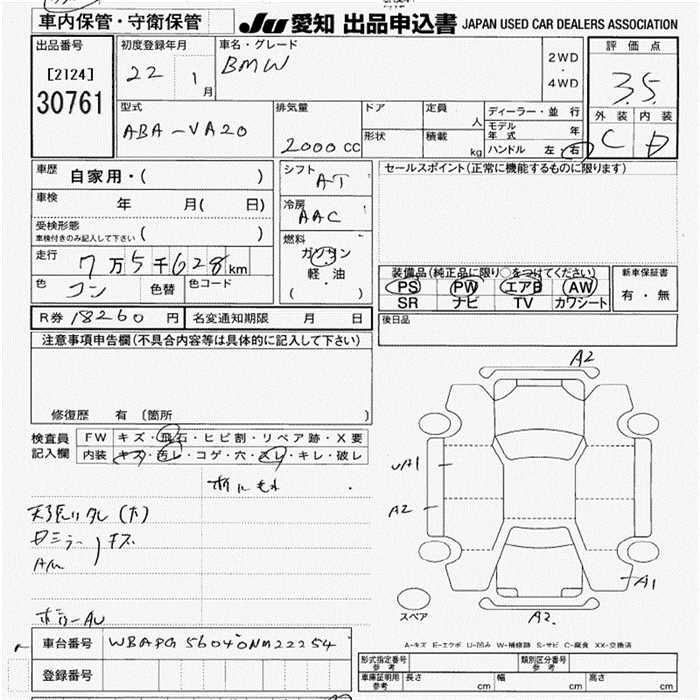 車内保管・守衛保管
JU 愛知 出品申込書 JAPAN USED CAR DEALERS ASSOCIATION
出品番号
[2124]
30761
初度登録年月
22 1 月
車名・グレード
BMW
2WD
・
4WD
評価点
3.5
外装 内装
C D
型式
ABA-VA20
排気量
2000 CC
ドア
形状
定員 人
積載 kg
ディーラー・並行
モデル年式 年
ハンドル 左 右
車歴 自家用・( )
車検 年 月( 日)
受検形態
車検付きのみ記入して下さい ( )
走行 7万5千628km
色 コン 色替 色コード
シフト AT
冷房 AAC
燃料
ガソリン
軽・油
( ・ )
セールスポイント(正常に機能するものに限ります)
装備品(純正品に限り○をつけてください)
PS PW エアB AW
SR ナビ TV カワシート
新車保証書
有・無
R券 18260 円 名変通知期限 月 日
後日品
注意事項申告欄(不具合内容等は具体的に記入して下さい)
修復歴 有 (箇所 )
検査員
記入欄
FW キズ・飛石・ヒビ割・リペア跡・X要
内装 キズ・汚レ・コゲ・穴・スレ・キレ・破レ
A2
UA1
A2
A1
A2
スペア
A-キズ E-エクボ U-凹み W-補修跡 S-サビ C-腐食 XX-交換済
車台番号 WBAPG56040NM22254
登録番号
形式指定番号 参考
類別区分番号 参考
車庫証明用 参考 長さ cm 幅 cm 高さ cm